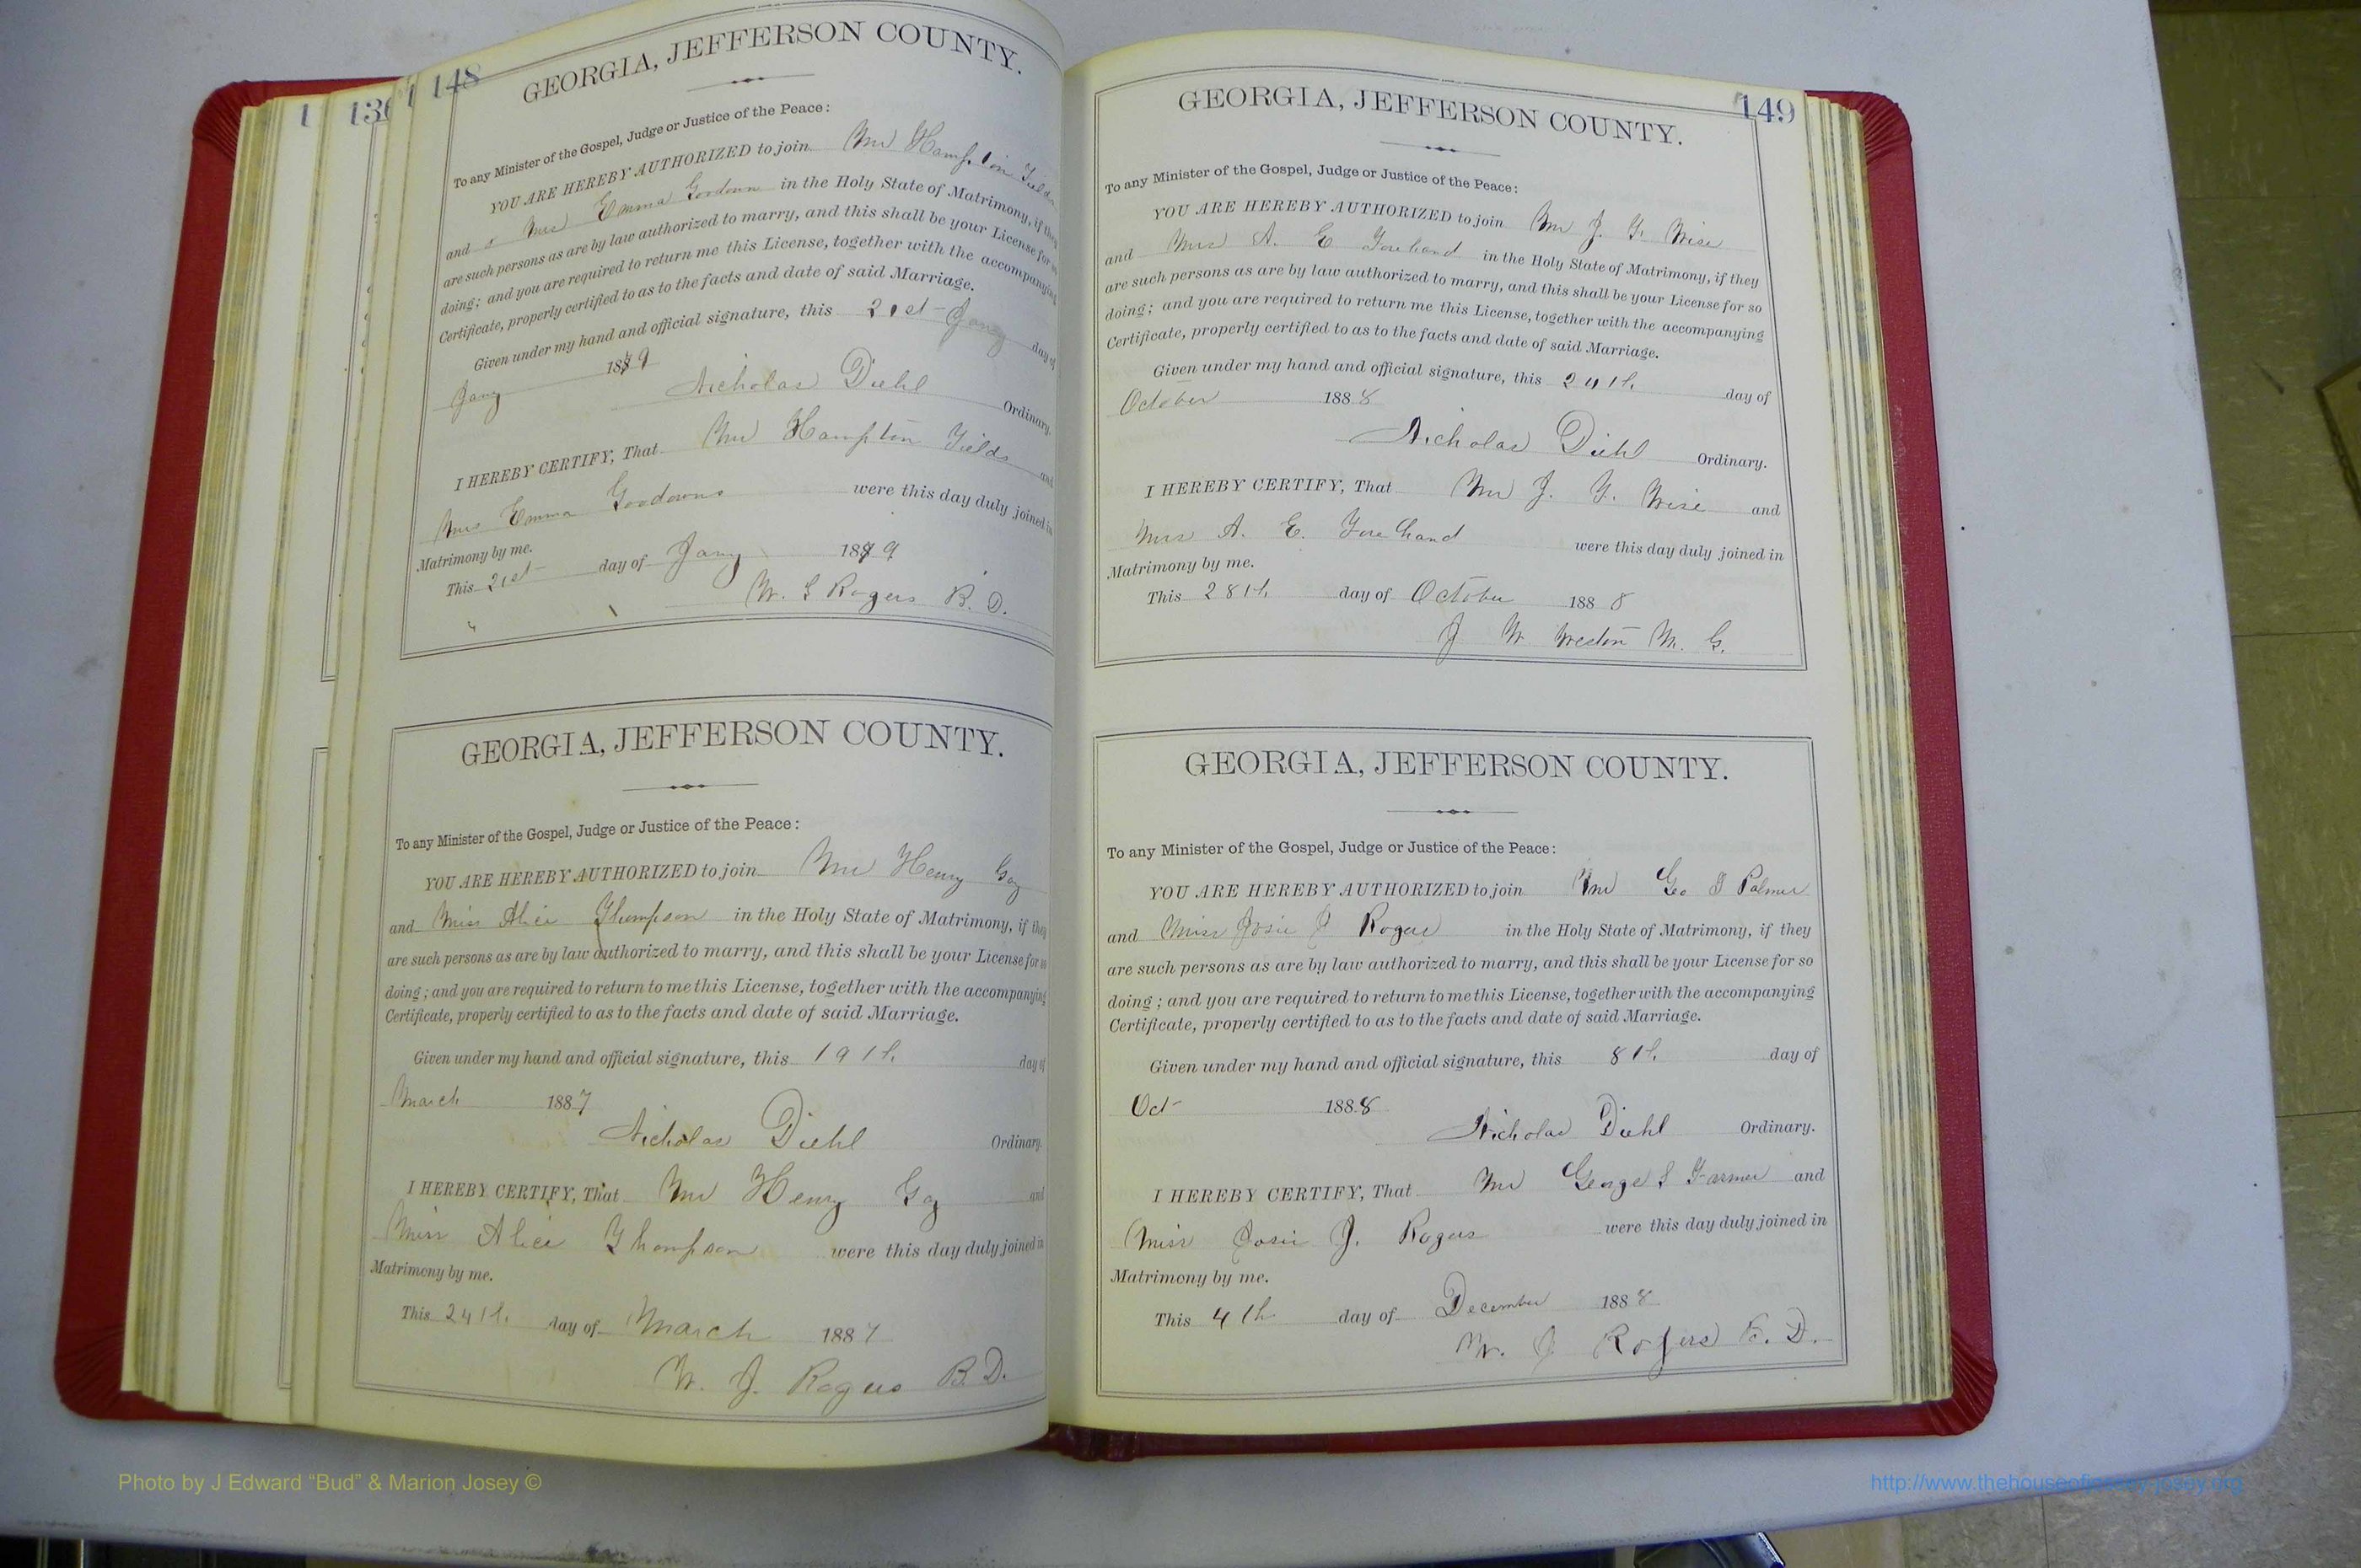 1
130
148
GEORGIA, JEFFERSON COUNTY.
To any Minister of the Gospel, Judge or Justice of the Peace:
YOU ARE HEREBY AUTHORIZED to join Mr Hampton Fields
and Mrs Emma Goodown in the Holy State of Matrimony, if they
are such persons as are by law authorized to marry, and this shall be your License for so
doing; and you are required to return me this License, together with the accompanying
Certificate, properly certified to as to the facts and date of said Marriage.
Given under my hand and official signature, this 21st Jany day of
Jany 1889
Nicholas Diehl Ordinary.
I HEREBY CERTIFY, That Mr Hampton Fields and
Mrs Emma Goodowns were this day duly joined in
Matrimony by me.
This 21st day of Jany 1889
W. S Rogers B. D.
GEORGIA, JEFFERSON COUNTY.
To any Minister of the Gospel, Judge or Justice of the Peace:
YOU ARE HEREBY AUTHORIZED to join Mr Henry Gay
and Miss Alice Thompson in the Holy State of Matrimony, if they
are such persons as are by law authorized to marry, and this shall be your License for so
doing; and you are required to return to me this License, together with the accompanying
Certificate, properly certified to as to the facts and date of said Marriage.
Given under my hand and official signature, this 19th day of
March 1887
Nicholas Diehl Ordinary.
I HEREBY CERTIFY, That Mr Henry Gay and
Miss Alice Thompson were this day duly joined in
Matrimony by me.
This 24th day of March 1887
W. J. Rogers B. D.
149
GEORGIA, JEFFERSON COUNTY.
To any Minister of the Gospel, Judge or Justice of the Peace:
YOU ARE HEREBY AUTHORIZED to join Mr J. Y. Wise
and Mrs A. E Forehand in the Holy State of Matrimony, if they
are such persons as are by law authorized to marry, and this shall be your License for so
doing; and you are required to return me this License, together with the accompanying
Certificate, properly certified to as to the facts and date of said Marriage.
Given under my hand and official signature, this 24th day of
October 1888
Nicholas Diehl Ordinary.
I HEREBY CERTIFY, That Mr J. Y. Wise and
Mrs A. E. Forehand were this day duly joined in
Matrimony by me.
This 28th day of October 1888
J W Weston M. G.
GEORGIA, JEFFERSON COUNTY.
To any Minister of the Gospel, Judge or Justice of the Peace:
YOU ARE HEREBY AUTHORIZED to join Mr Geo S Palmer
and Miss Josie J Rogers in the Holy State of Matrimony, if they
are such persons as are by law authorized to marry, and this shall be your License for so
doing; and you are required to return to me this License, together with the accompanying
Certificate, properly certified to as to the facts and date of said Marriage.
Given under my hand and official signature, this 8th day of
Oct 1888
Nicholas Diehl Ordinary.
I HEREBY CERTIFY, That Mr George S Farmer and
Miss Josie J. Rogers were this day duly joined in
Matrimony by me.
This 4th day of December 1888
W. J Rogers B. D.
Photo by J Edward “Bud” & Marion Josey ©